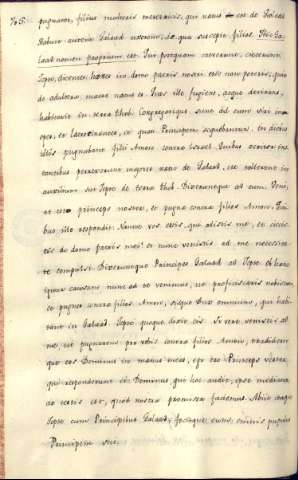 pugnator, filius mulieris meretricis, qui natus est de Galaad
habuit autem Galaad uxorem, de qua suscepit filios
nomen proprium est. Qui postquam creverant, ejecerunt
Jepte, dicentes: haeres in domo patris nostri esse non poteris, quia
de adultera matre natus es. Quos ille fugiens, atque devitans,
habitavit in terra Thob. Congregatique sunt ad eum viri in-
opes, et latrocinantes, et quasi Principem sequebantur. In diebus
illis pugnabant filii Amon contra Israel. Quibus acriter in-
stantibus perrexerunt majores natu de Galaad, ut tollerent in
auxilium sui Jepte de terra Thob. Dixeruntque ad eum: Veni,
et esto princeps noster, et pugna contra filios Amon. Qui-
bus ille respondit: Nonne vos estis, qui odistis me, et ejecis-
tis de domo patris mei: et nunc venistis ad me necessita-
te compulsi. Dixeruntque Principes Galaad ad Jepte: Ob hanc
igitur causam nunc ad te venimus, ut proficiscaris nobiscum
et pugnes contra filios Amon, sisque Dux omnium, qui habi-
tant in Galaad. Jepte quoque dixit eis: Si vere venistis ad
me, ut pugnem pro vobis contra filios Amon, tradideritque
eos Dominus in manus meas, ego ero Princeps vester,
qui responderunt ei: Dominus, qui haec audit, ipse mediator
ac testis est, quod nostra promissa faciemus. Abiit itaque
Jepte cum Principibus Galaad, fecitque eum omnis populus
Principem sui.